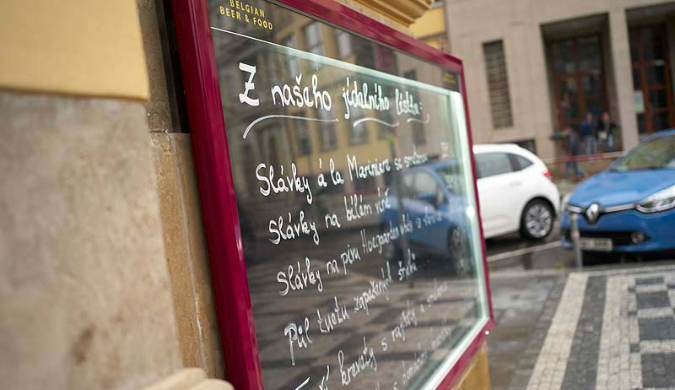 BELGIAN
BEER & FOOD
Z našeho jídelního lístku:
Slávky á la Mariniere se smetanou
Slávky na bílém víně
Slávky na pivu Hoegaarden
Půl tuctu zapečených
krevety s rajčaty a